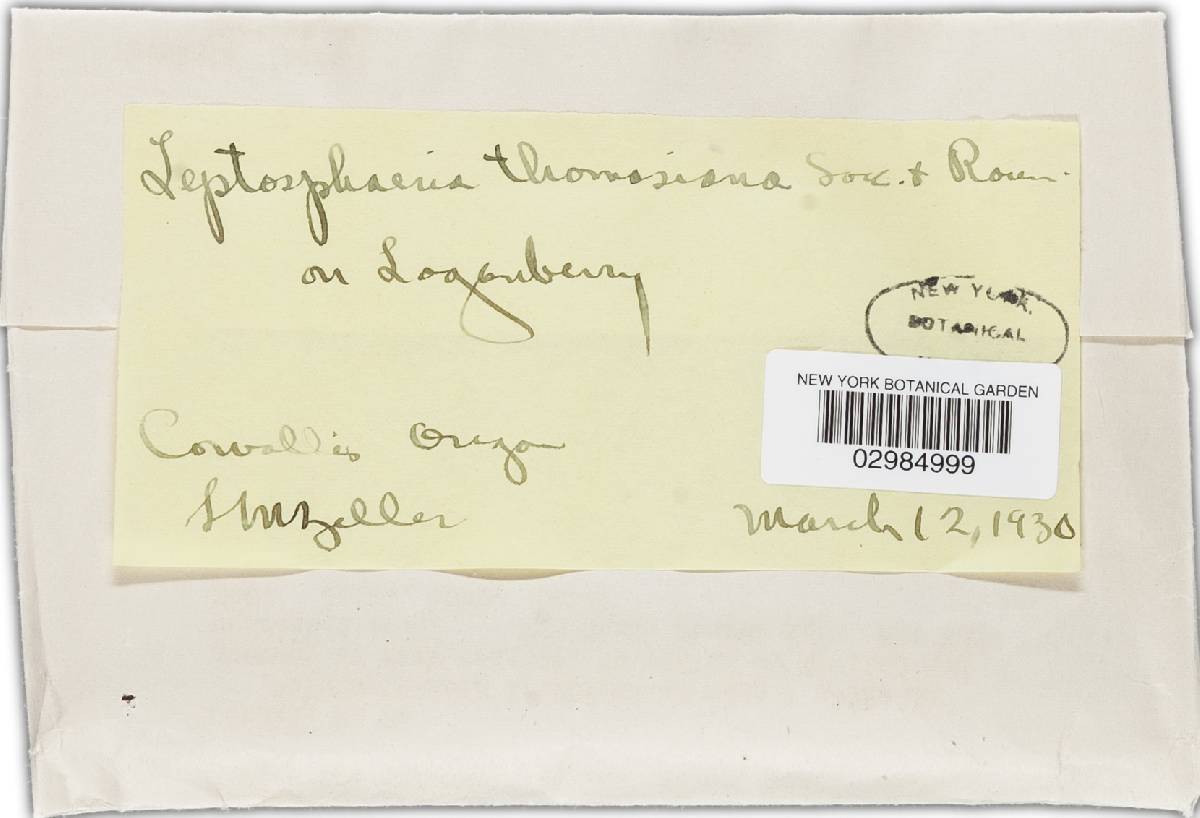 Leptosphaeria thomasiana Sacc. & Roum.
on Loganberry
NEW YORK
BOTANICAL
NEW YORK BOTANICAL GARDEN
02984999
Corvallis Oregon
S M Zeller
March 12, 1930